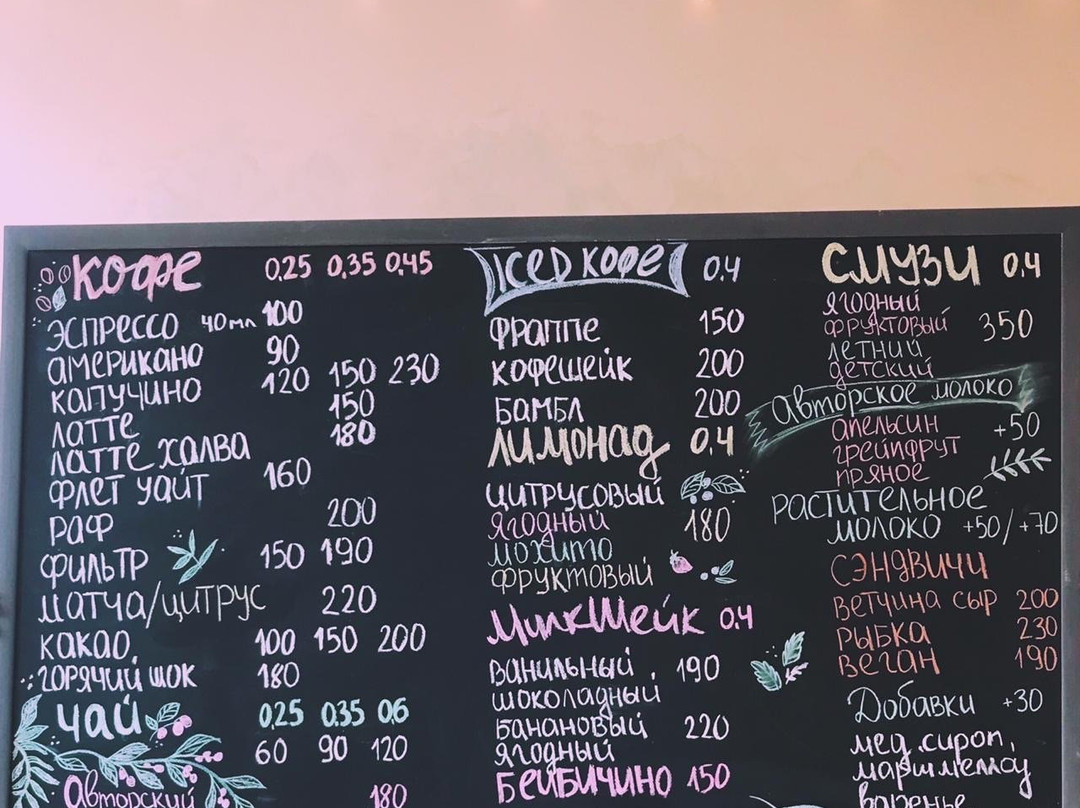 КОФЕ 0,25 0,35 0,45
ЭСПРЕССО 40мл 100
АМЕРИКАНО 90
КАПУЧИНО 120 150 230
ЛАТТЕ 150
ЛАТТЕ ХАЛВА 180
ФЛЕТ УАЙТ 160
РАФ 200
ФИЛЬТР 150 190
МАТЧА/ЦИТРУС 220
КАКАО 100 150 200
ГОРЯЧИЙ ШОК 180
ЧАЙ 0,25 0,35 0,6
60 90 120
Авторский 180
ICED КОФЕ 0,4
ФРАППЕ 150
КОФЕШЕЙК 200
БАМБЛ 200
ЛИМОНАД 0,4
ЦИТРУСОВЫЙ
ЯГОДНЫЙ 180
МОХИТО
ФРУКТОВЫЙ
МИЛКШЕЙК 0,4
ВАНИЛЬНЫЙ 190
ШОКОЛАДНЫЙ
БАНАНОВЫЙ 220
ЯГОДНЫЙ
БЕЙБИЧИНО 150
СМУЗИ 0,4
ЯГОДНЫЙ
ФРУКТОВЫЙ 350
ЛЕТНИЙ
ДЕТСКИЙ
Авторское молоко
АПЕЛЬСИН +50
ГРЕЙПФРУТ
ПРЯНОЕ
РАСТИТЕЛЬНОЕ
МОЛОКО +50/+70
СЭНДВИЧИ
ВЕТЧИНА СЫР 200
РЫБКА 230
ВЕГАН 190
Добавки +30
мед, сироп,
маршмеллоу
варенье